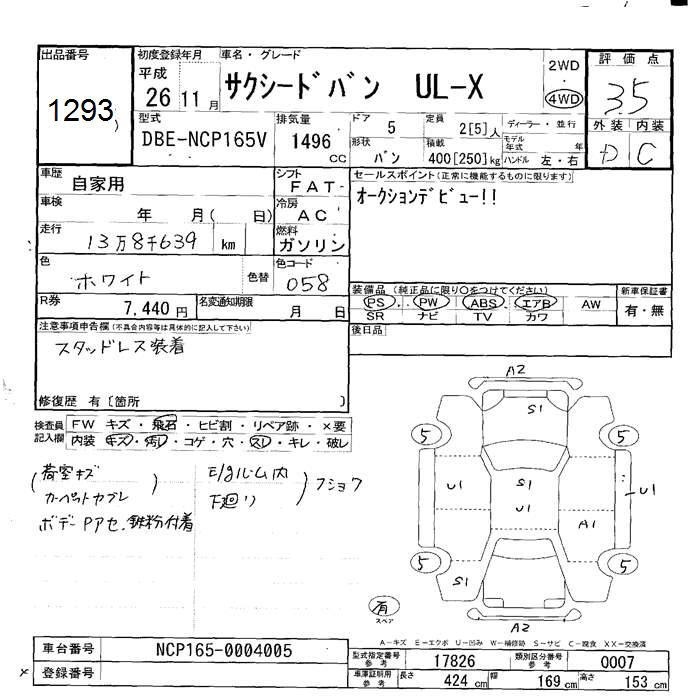 出品番号
1293
初度登録年月
平成
26 11月
車名・グレード
サクシードバン UL-X
2WD
4WD
評価点
3.5
外装 内装
D C
型式
DBE-NCP165V
排気量
1496 cc
ドア
5
定員
2[5]人
形状
バン
積載
400[250]kg
ディーラー・並行
モデル年式 年
ハンドル 左・右
車歴
自家用
シフト
FAT
セールスポイント(正常に機能するものに限ります)
オークションデビュー!!
車検
年 月( 日)
冷房
AC
走行
13万8千639 km
燃料
ガソリン
色
ホワイト
色替
色コード
058
R券
7,440円
名変通知期限
月 日
装備品(純正品に限り○をつけてください)
PS PW ABS エアB AW
SR ナビ TV カワ
新車保証書
有・無
後日品
注意事項申告欄(不具合内容等は具体的に記入して下さい)
スタッドレス装着
修復歴 有[箇所 ]
検査員記入欄
FW キズ・飛石・ヒビ割・リペア跡・×要
内装 キズ・汚レ・コゲ・穴・スレ・キレ・破レ
荷室キズ
カーペットカブレ
ボデーPアセ、鉄粉付着
E/gルーム内
下廻り
フショク
A2
S1
5
5
U1
S1
U1
A1
U1
5
5
S1
A2
有
スペア
A-キズ E-エクボ U-凹み W-補修跡 S-サビ C-腐食 XX-交換済
車台番号
NCP165-0004005
登録番号
型式指定番号 参考
17826
類別区分番号 参考
0007
車庫証明用 参考
長さ 424 cm 幅 169 cm 高さ 153 cm